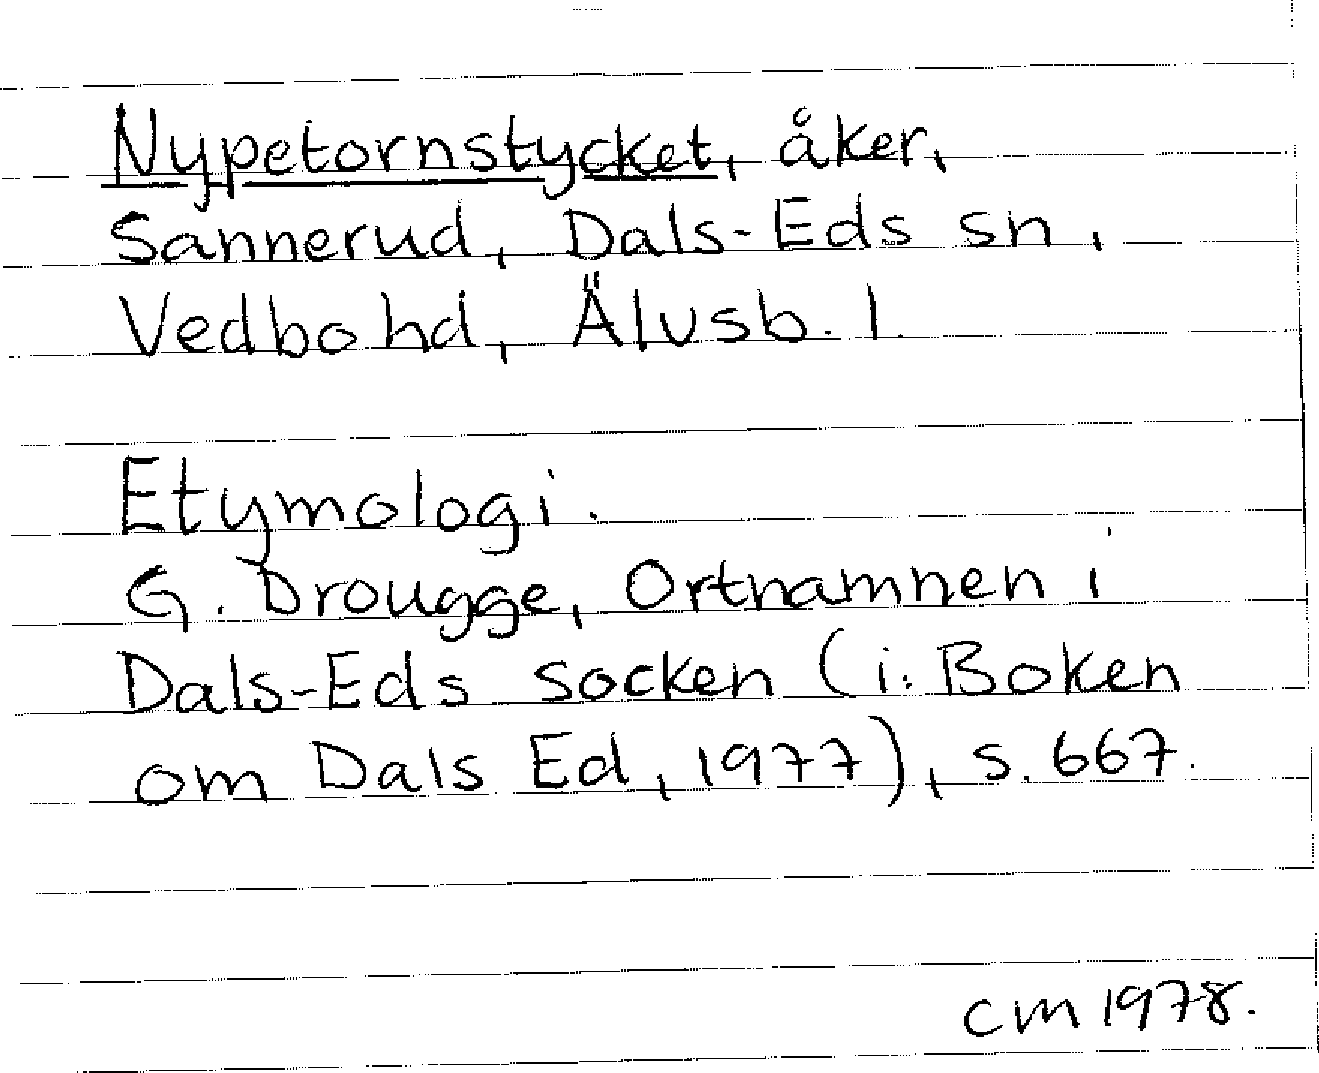 Nypetornstycket, åker,
Sannerud, Dals-Eds sn,
Vedbo hd, Älvsb. l.
Etymologi.
G. Drougge, Ortnamnen i
Dals-Eds socken (i: Boken
om Dals Ed, 1977), s. 667.
CM 1978.